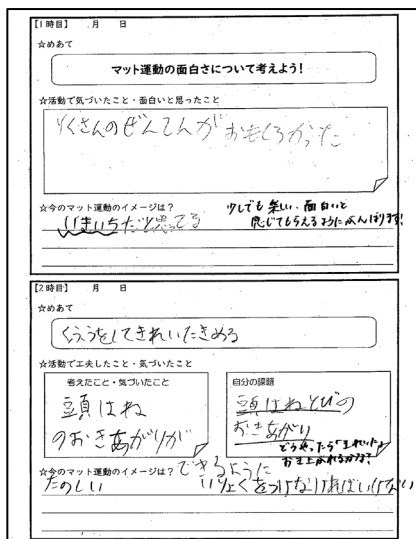 【1時目】 月 日
☆めあて
マット運動の面白さについて考えよう!
☆活動で気づいたこと・面白いと思ったこと
りくさんのぜんてんがおもしろかった
☆今のマット運動のイメージは?
いまいちだと思ってる
少しでも楽しい・面白いと
感じてもらえるようにがんばります!
【2時目】 月 日
☆めあて
くふうをしてきれいにきめる
☆活動で工夫したこと・気づいたこと
考えたこと・気づいたこと
頭はね
のおきあがりが
できるように
いしきをつけなければいけない
自分の課題
頭はねとびの
おきあがり
どうやったらきれいに
おき上がれるかな?
☆今のマット運動のイメージは?
たのしい